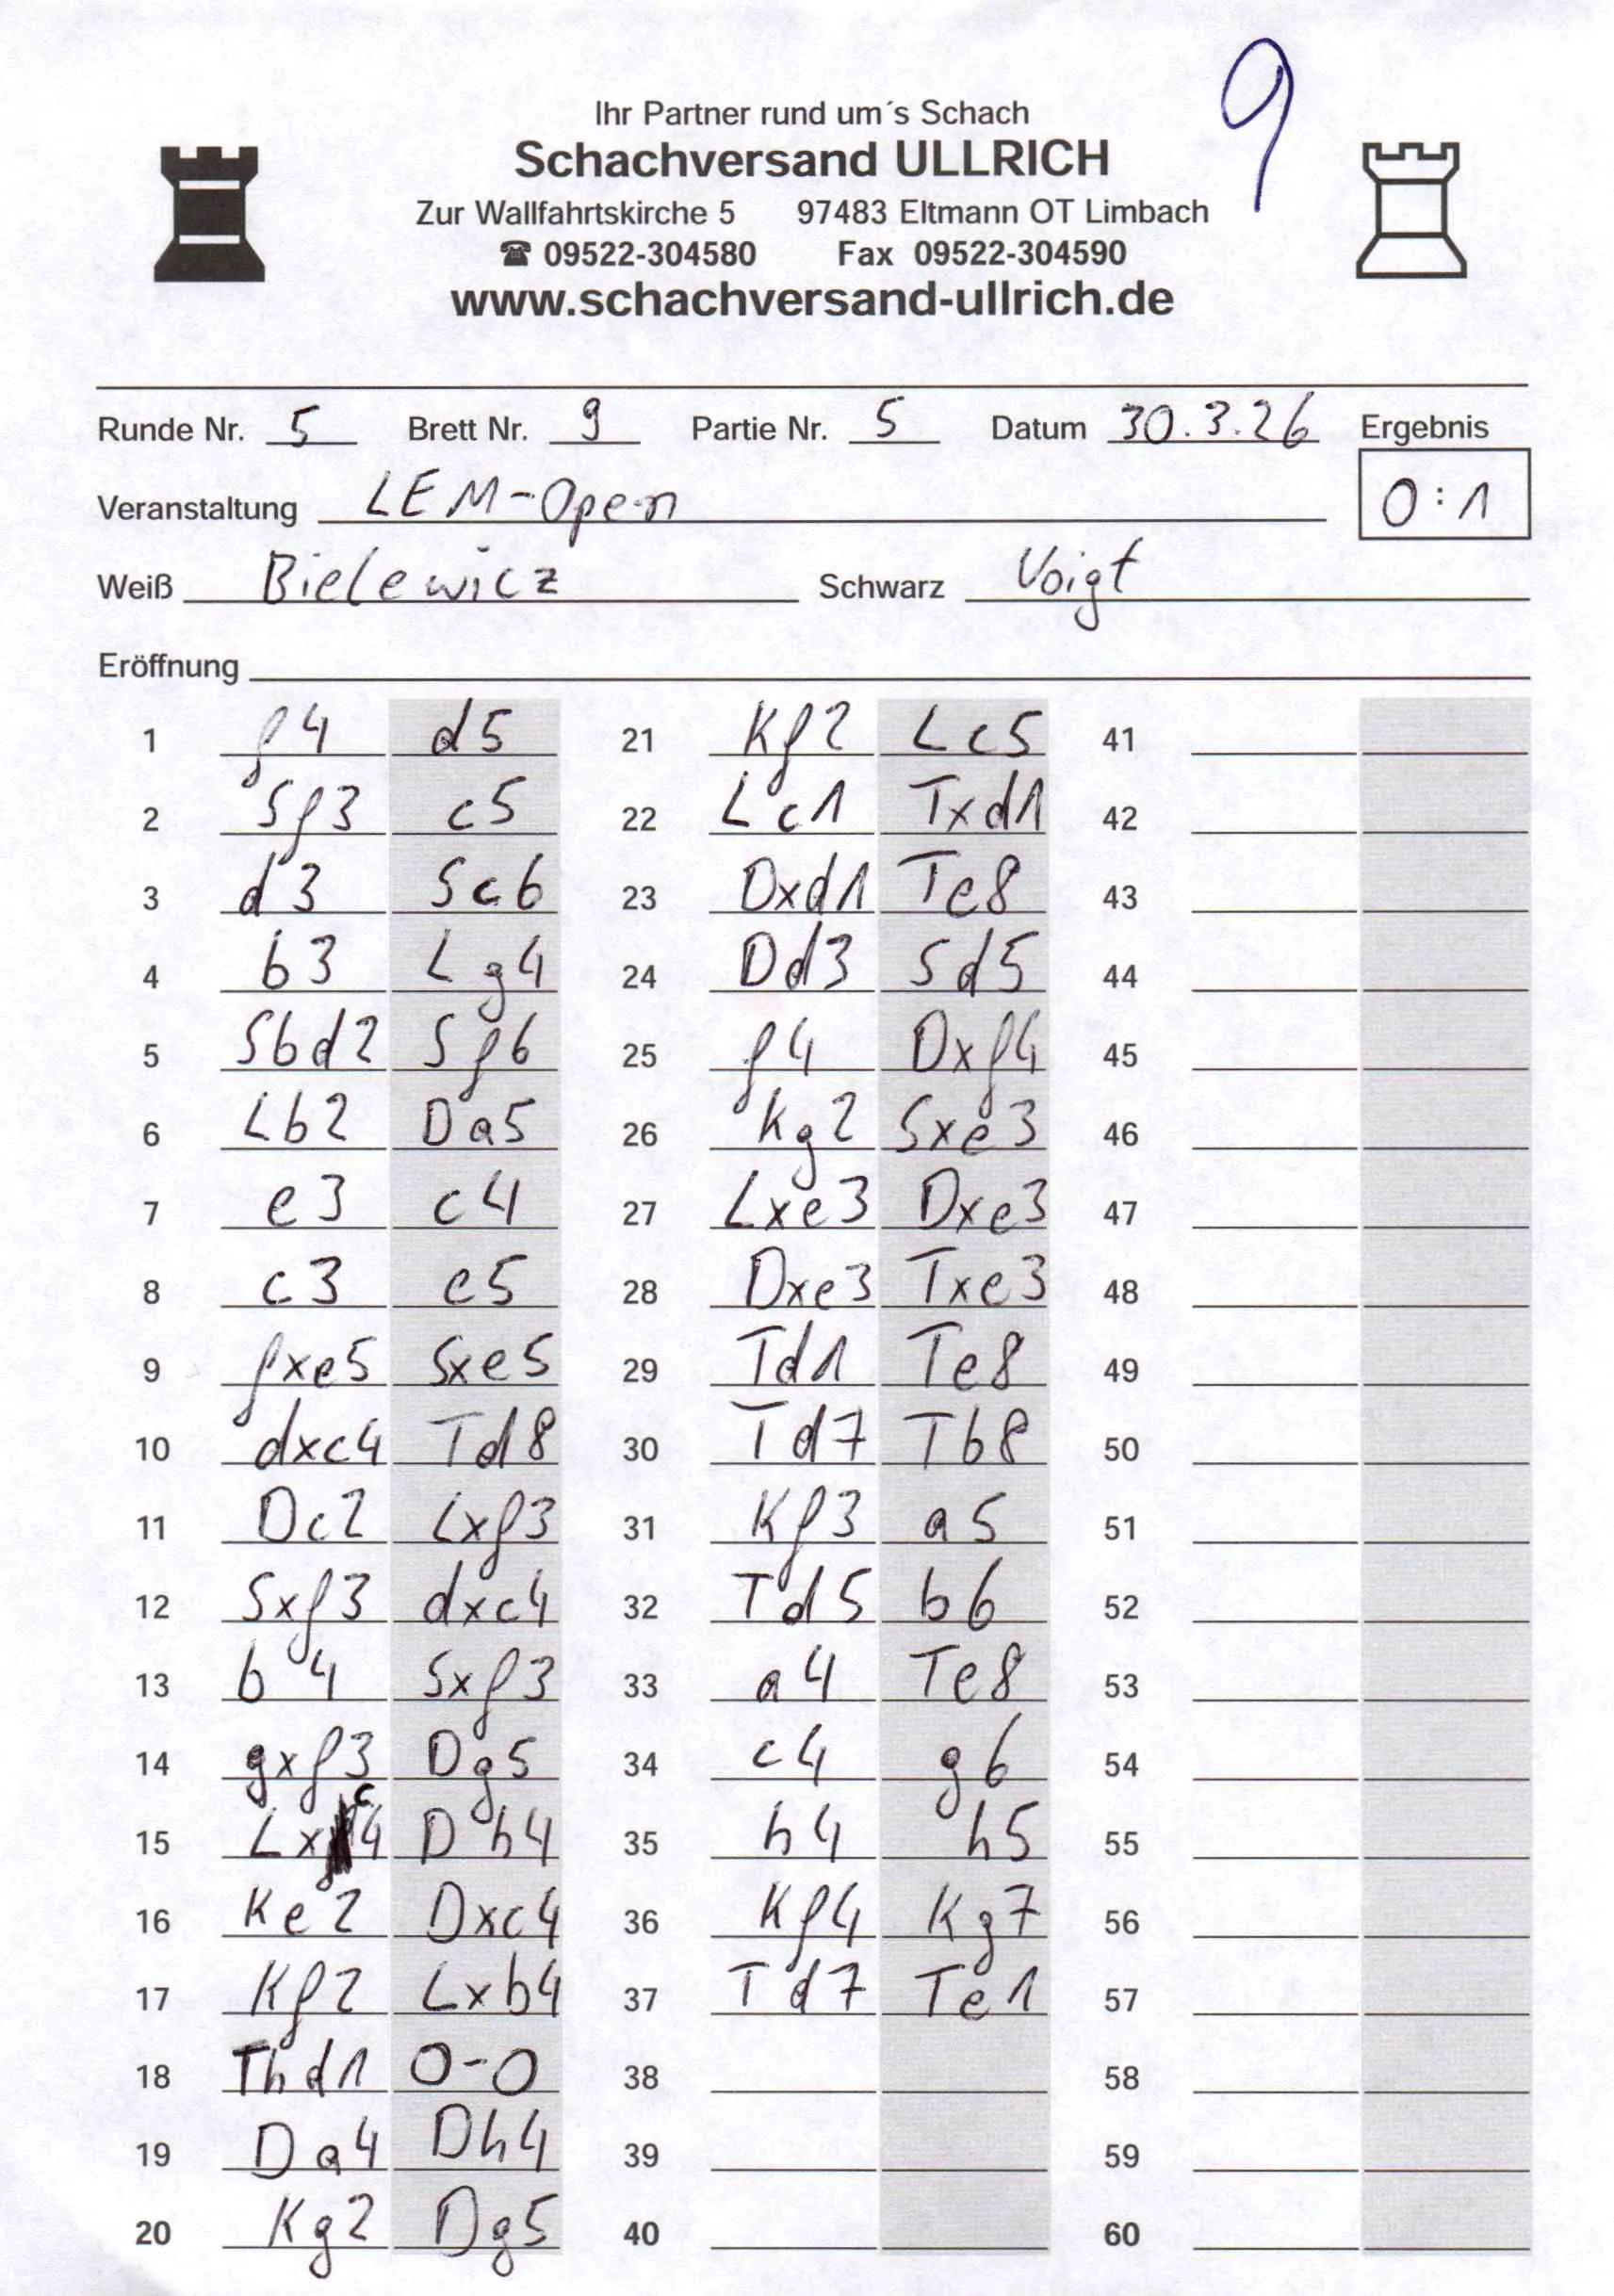 9
Ihr Partner rund um´s Schach
Schachversand ULLRICH
Zur Wallfahrtskirche 5 97483 Eltmann OT Limbach
☎ 09522-304580 Fax 09522-304590
www.schachversand-ullrich.de
Runde Nr. 5 Brett Nr. 9 Partie Nr. 5 Datum 30.3.26 Ergebnis
Veranstaltung LEM-Open 0:1
Weiß Bielewicz Schwarz Voigt
Eröffnung
1 f4 d5 21 Kf2 Lc5 41
2 Sf3 c5 22 Lc1 Txd1 42
3 d3 Sc6 23 Dxd1 Te8 43
4 b3 Lg4 24 Dd3 Sd5 44
5 Sbd2 Sf6 25 f4 Dxf4 45
6 Lb2 Da5 26 Kg2 Sxe3 46
7 e3 c4 27 Lxe3 Dxe3 47
8 c3 e5 28 Dxe3 Txe3 48
9 fxe5 Sxe5 29 Td1 Te8 49
10 dxc4 Td8 30 Td7 Tb8 50
11 Dc2 Lxf3 31 Kf3 a5 51
12 Sxf3 dxc4 32 Td5 b6 52
13 b4 Sxf3 33 a4 Te8 53
14 gxf3 Dg5 34 c4 g6 54
15 Lxc4 Dh4 35 h4 h5 55
16 Ke2 Dxc4 36 Kf4 Kg7 56
17 Kf2 Lxb4 37 Td7 Te1 57
18 Thd1 0-0 38 58
19 Da4 Dh4 39 59
20 Kg2 Dg5 40 60